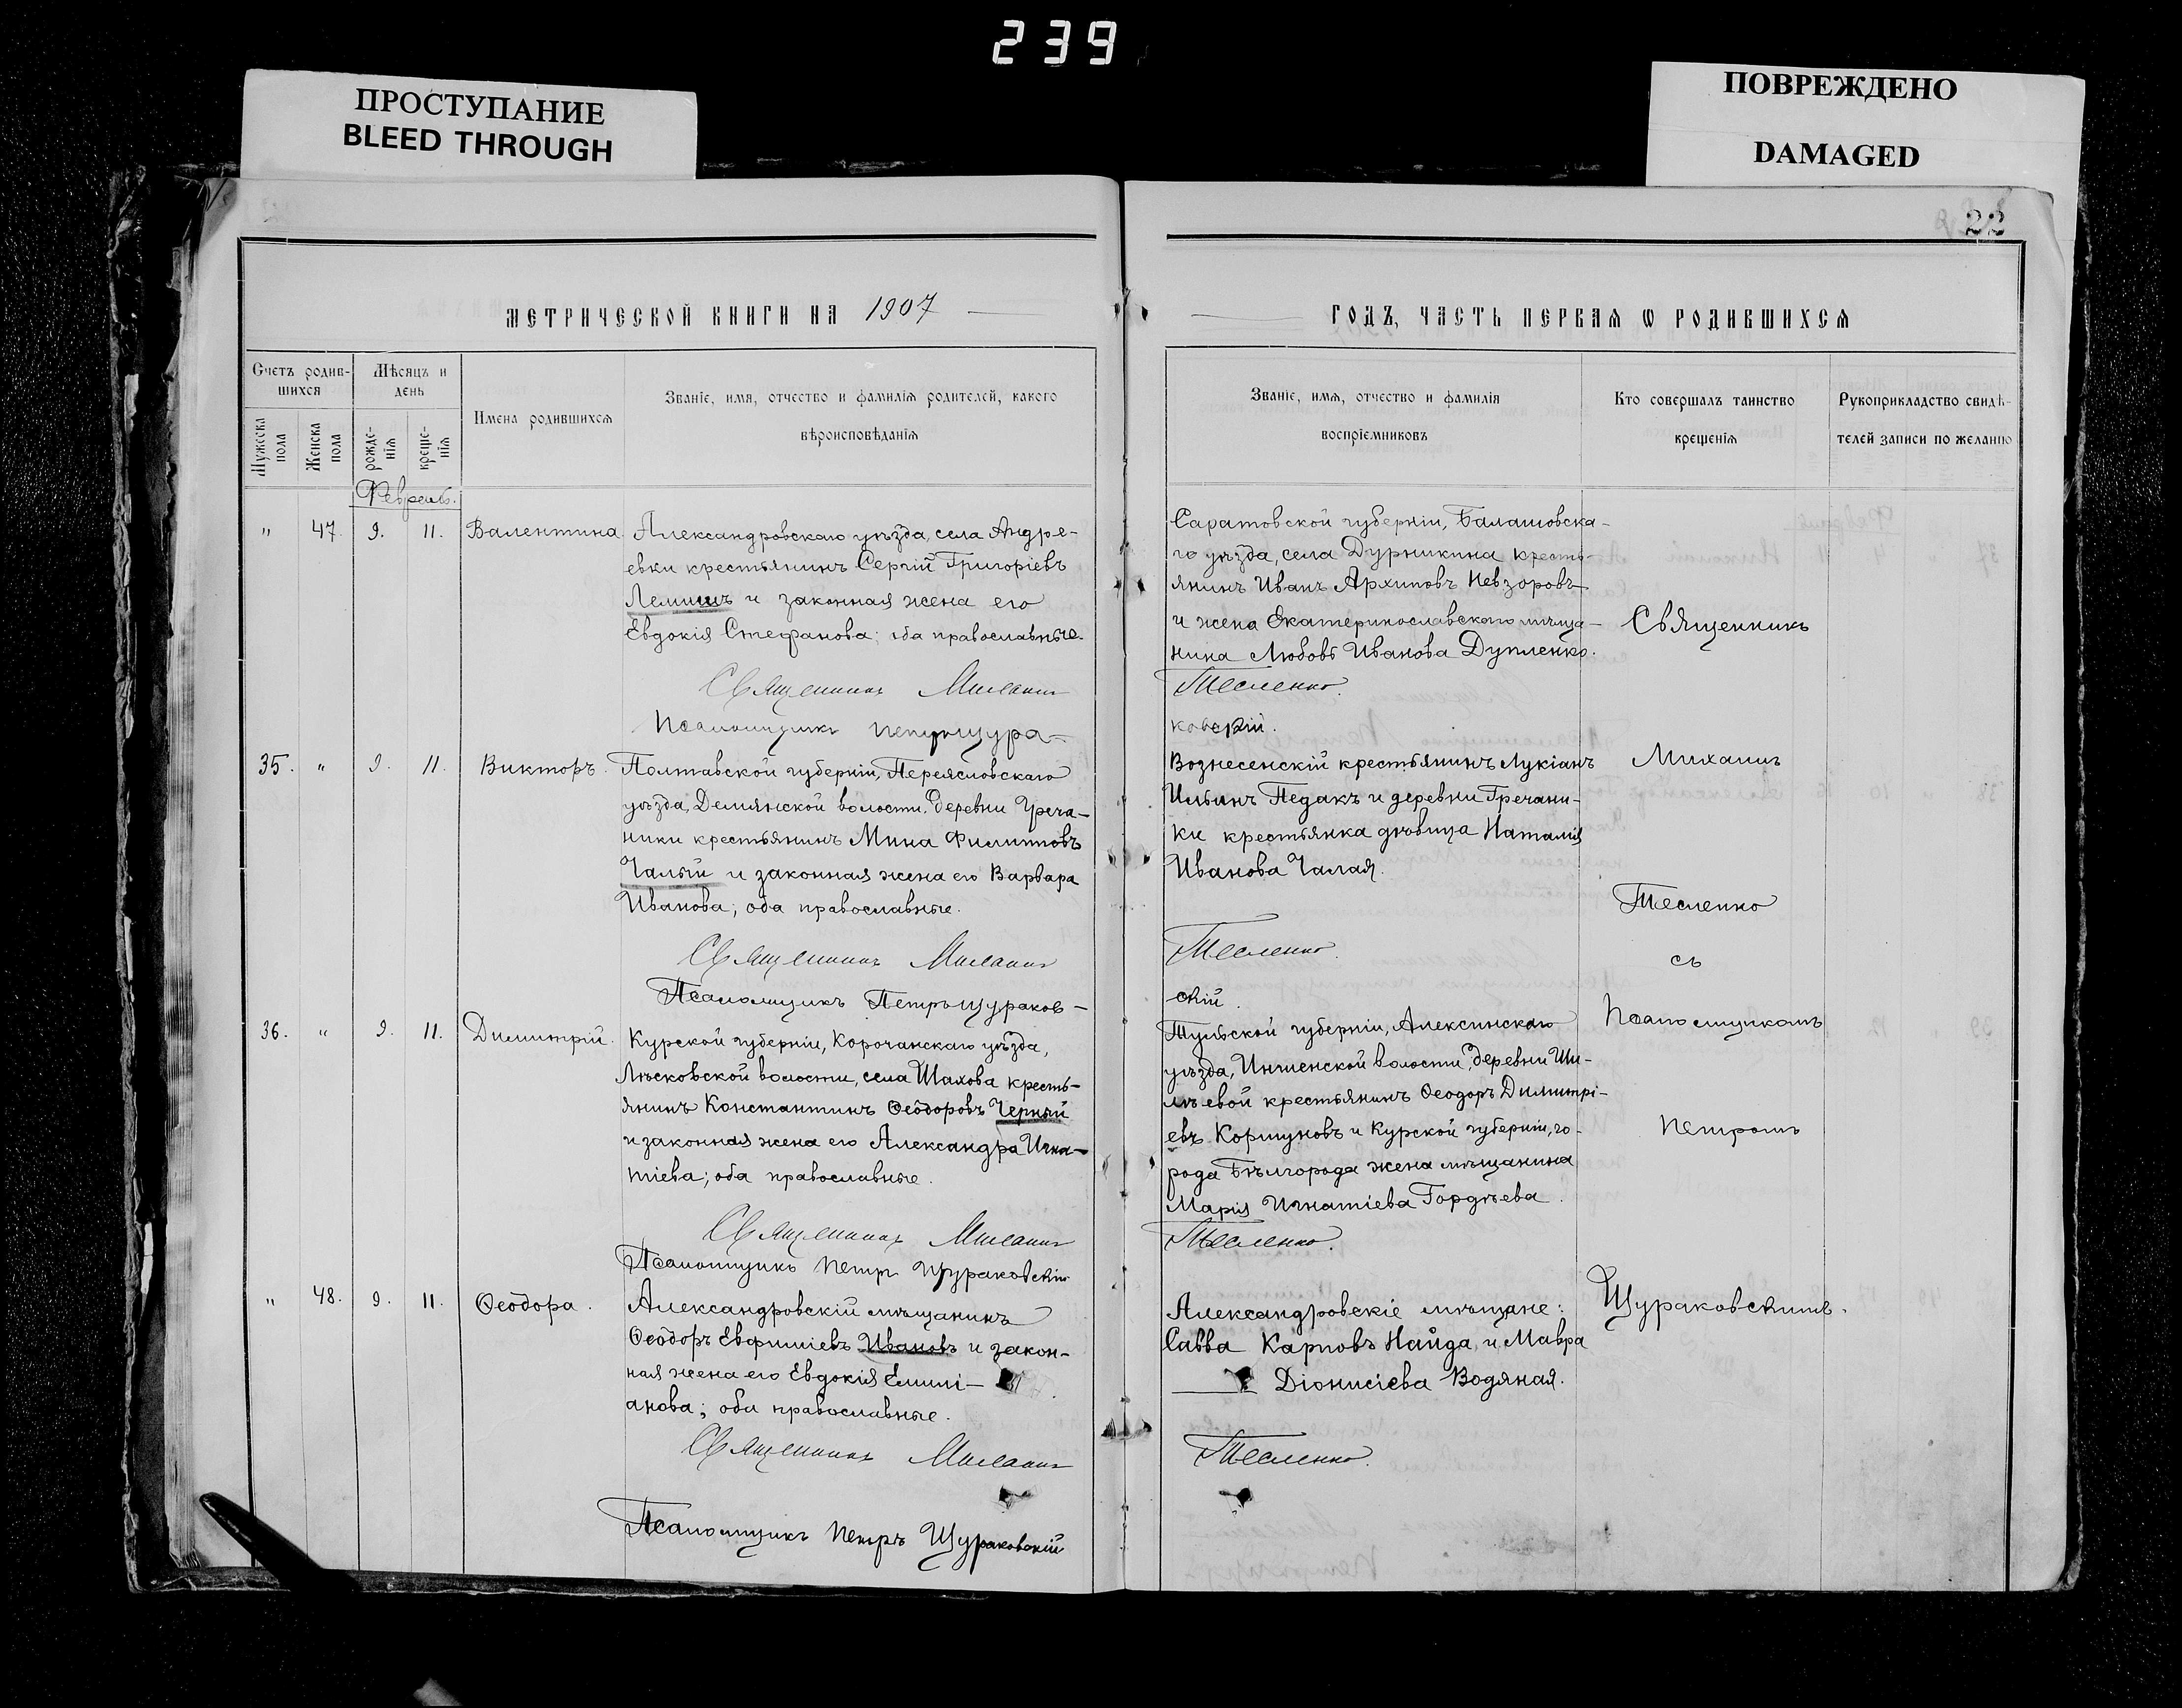 239
ПРОСТУПАНИЕ
BLEED THROUGH
ПОВРЕЖДЕНО
DAMAGED
22
МЕТРИЧЕСКОЙ КНИГИ НА 1907
Счетъ родив-
шихся
Мѣсяцъ и
день
Мужеска
пола
Женска
пола
рожде-
нія
креще-
нія
Имена родившихся
Званіе, имя, отчество и фамилія родителей, какого
вѣроисповѣданія
Февраль.
" 47. 9. 11. Валентина. Александровскаго уѣзда, села Андре-
евки крестьянинъ Сергій Григоріевъ
Лемишъ и законная жена его
Евдокія Стефанова; оба православные.
Священникъ Михаилъ
Псаломщикъ Петръ Щура-
35. " 9. 11. Викторъ. Полтавской губерніи, Переясловскаго
уѣзда, Демянской волости, деревни Греча-
ники крестьянинъ Мина Филипповъ
Чалый и законная жена его Варвара
Иванова; оба православные.
Священникъ Михаилъ
Псаломщикъ Петръ Щураков-
36. " 9. 11. Димитрій. Курской губерніи, Корочанскаго уѣзда,
Лѣсковской волости, села Шахова кресть-
янинъ Константинъ Ѳеодоровъ Черный
и законная жена его Александра Игна-
тіева; оба православные.
Священникъ Михаилъ
Псаломщикъ Петръ Щураковскій
" 48. 9. 11. Ѳеодора. Александровскій мѣщанинъ
Ѳеодоръ Евфиміевъ Ивановъ и закон-
ная жена его Евдокія Емилі-
анова; оба православные.
Священникъ Михаилъ
Псаломщикъ Петръ Щураковскій
ГОДЪ, ЧАСТЬ ПЕРВАЯ Ѡ РОДИВШИХСЯ
Званіе, имя, отчество и фамилія
воспріемниковъ
Кто совершалъ таинство
крещенія
Рукоприкладство свидѣ-
телей записи по желанію
Саратовской губерніи, Балашовска-
го уѣзда, села Дурникина кресть-
янинъ Иванъ Архиповъ Невзоровъ
и жена Екатеринославскаго мѣща-
нина Любовь Иванова Дупленко.
Тесленко.
ковскій.
Вознесенскій крестьянинъ Лукіанъ
Ильинъ Педакъ и деревни Гречани-
ки крестьянка дѣвица Наталія
Иванова Чалая.
Тесленко.
скій.
Тульской губерніи, Алексинскаго
уѣзда, волости, деревни
крестьянинъ Ѳеодоръ Димитрі-
евъ Коршуновъ и Курской губерніи, го-
рода Бѣлгорода жена мѣщанина
Марія Игнатіева Гордѣева.
Тесленко.
Александровскіе мѣщане:
Савва Карповъ Найда и Мавра
Діонисіева Водяная.
Тесленко.
Священникъ
Михаилъ
Тесленко
съ
Псаломщикомъ
Петромъ
Щураковскимъ.